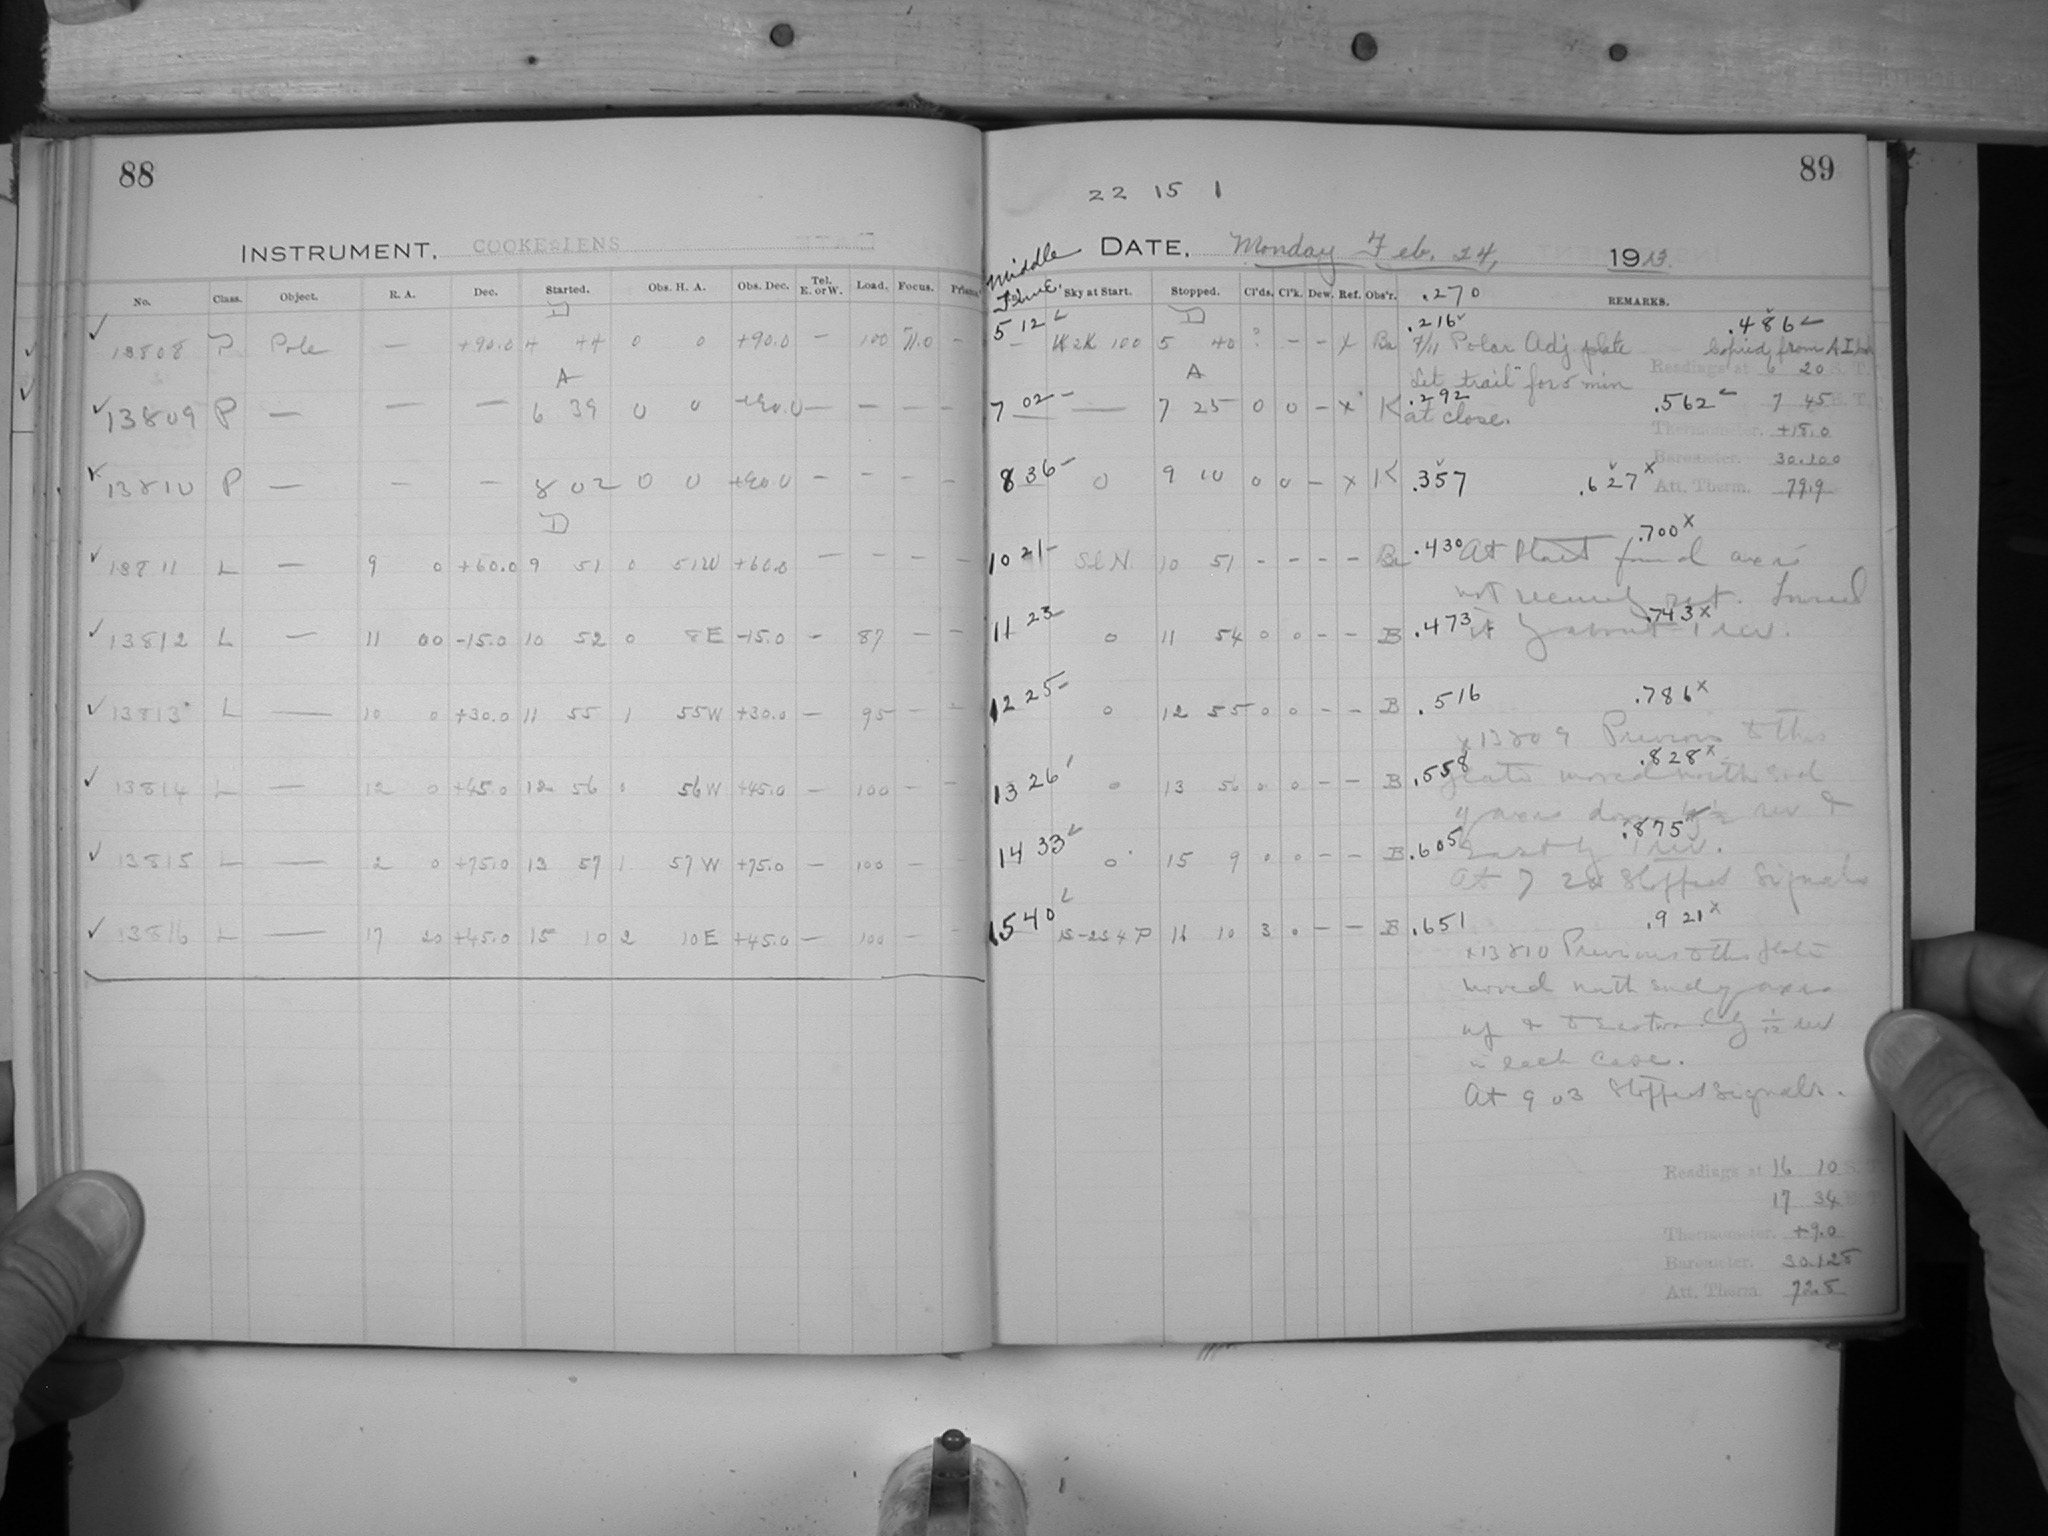 88
INSTRUMENT, COOKE LENS
No. Class. Object. R. A. Dec. Started. Obs. H. A. Obs. Dec. Tel. E. or W. Load. Focus.
D
13808 P Pole — +90.0 4 44 0 0 +90.0 — 100 71.0 —
A
13809 P — — — 6 39 0 0 +90.0 — — — —
13810 P — — — 8 02 0 0 +90.0 — — — —
D
13811 L — 9 0 +60.0 9 51 0 51W +60.0 — — — —
13812 L — 11 00 -15.0 10 52 0 8E -15.0 — 87 — —
13813 L — 10 0 +30.0 11 55 1 55W +30.0 — 95 — —
13814 L — 12 0 +45.0 12 56 0 56W +45.0 — 100 — —
13815 L — 2 0 +75.0 13 57 1 57W +75.0 — 100
13816 L — 17 20 +45.0 15 10 2 10E +45.0 — 100 — —
89
22 15 1
DATE, Monday Feb. 24, 1913
Middle
Time. Sky at Start. Stopped. Cl'ds. Cl'k. Dew. Ref. Obs'r. .270 REMARKS.
D
5 12 2K 100 5 40 ? — — x Ba .216 .486
Polar Adj. plate copied from A I
Let trail for 5 min Readings at 6 20 S. T.
A
7 02 — 7 25 0 0 — x K .292 .562 7 45 E. T.
at close.
Thermometer. +18.0
Barometer. 30.100
8 36 0 9 10 0 0 — x K .357 .627 x Att. Therm. 79.9
10 21 10 51 — — — — Ba .430 .700 x
At start found axis
not securely set. Turned
11 23 0 11 54 0 0 — — B .473 .743 x
it by about 1 rev.
12 25 0 12 55 0 0 — — B .516 .786 x
x13809 Previous to this
13 26 0 13 56 0 0 — — B .558 .828 x
plate moved north end
of axis down rev &
14 33 0 15 9 0 0 — — B .605 .875 x
East by rev.
At 7 28 Stopped Signals
15 40 1S-2S 4 P 16 10 3 0 — — B .651 .921 x
x13810 Previous to this plate
moved north end of axis
up & to Eastward by 1/12 rev
in each case.
At 9 03 Stopped Signals.
Readings at 16 10 S. T.
17 34
Thermometer. +9.0
Barometer. 30.125
Att. Therm. 72.5